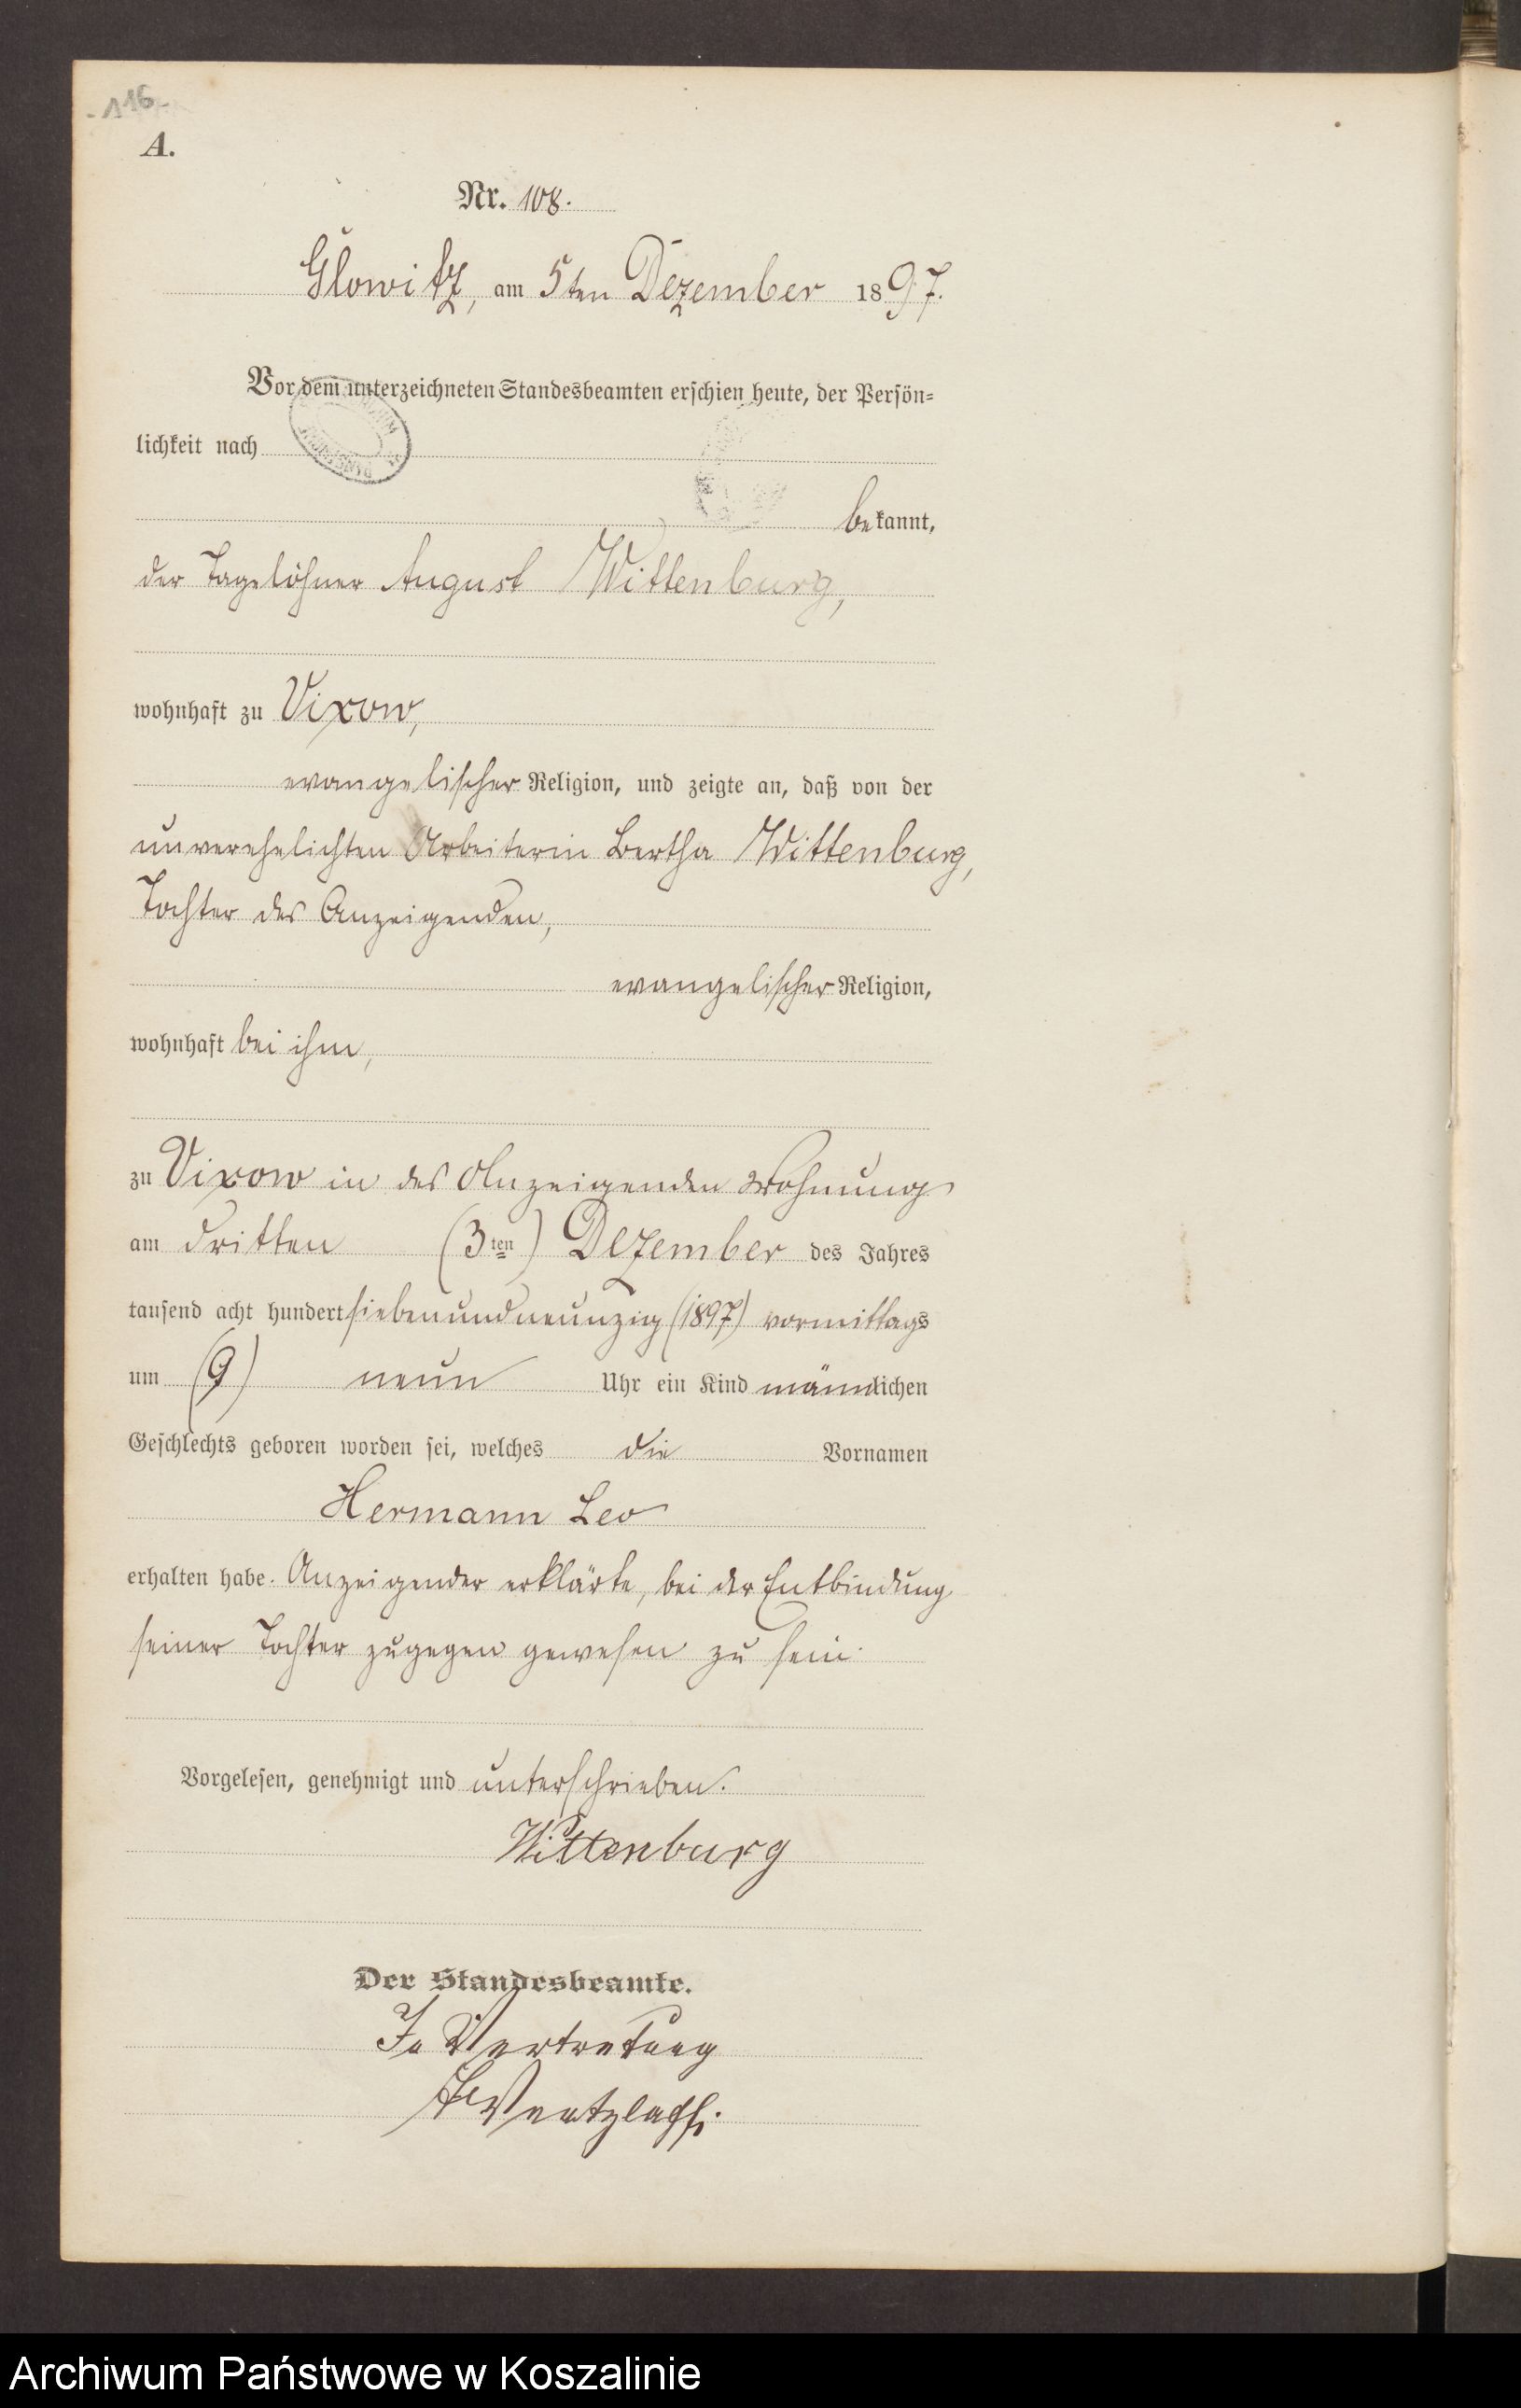 116
A.
Nr. 108.
Glowitz, am 5ten Dezember 1897.
Vor dem unterzeichneten Standesbeamten erschien heute, der Persön-
lichkeit nach
bekannt,
der Tagelöhner August Wittenburg,
wohnhaft zu Vixow,
evangelischer Religion, und zeigte an, daß von der
unverehelichten Arbeiterin Bertha Wittenburg,
Tochter des Anzeigenden,
evangelischer Religion,
wohnhaft bei ihm,
zu Vixow in des Anzeigenden Wohnung
am dritten (3ten) Dezember des Jahres
tausend acht hundert siebenundneunzig (1897) vormittags
um (9) neun Uhr ein Kind männlichen
Geschlechts geboren worden sei, welches die Vornamen
Hermann Leo
erhalten habe. Anzeigender erklärte, bei der Entbindung
seiner Tochter zugegen gewesen zu sein.
Vorgelesen, genehmigt und unterschrieben.
Wittenburg
Der Standesbeamte.
In Vertretung
Wentzlaff.
Archiwum Państwowe w Koszalinie